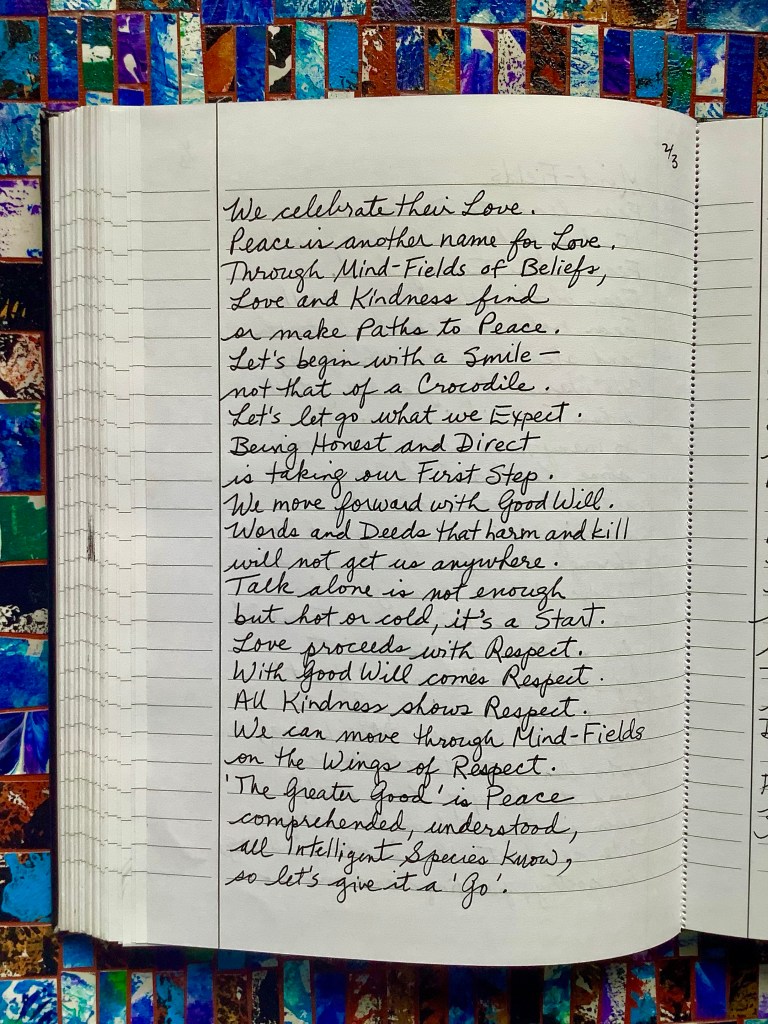 2/3
We celebrate their Love.
Peace is another name for Love.
Through Mind-Fields of Beliefs,
Love and Kindness find
or make Paths to Peace.
Let's begin with a Smile –
not that of a Crocodile.
Let's let go what we Expect.
Being Honest and Direct
is taking our First Step.
We move forward with Good Will.
Words and Deeds that harm and kill
will not get us anywhere.
Talk alone is not enough
but hot or cold, it's a Start.
Love proceeds with Respect.
With Good Will comes Respect.
All Kindness shows Respect.
We can move through Mind-Fields
on the Wings of Respect.
'The Greater Good' is Peace
comprehended, understood,
all Intelligent Species Know,
so let's give it a 'Go'.